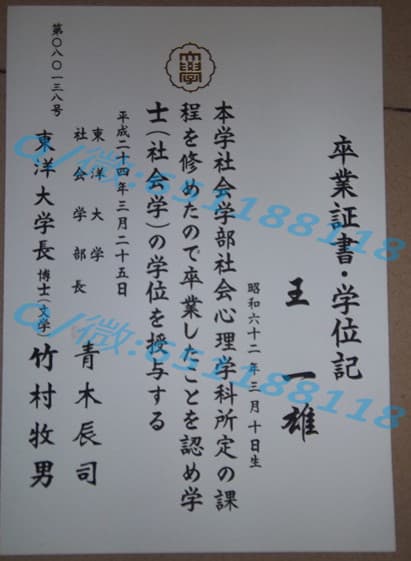 卒業証書・学位記
王一雄
昭和六十二年三月十日生
本学社会学部社会心理学科所定の課
程を修めたので卒業したことを認め学
士(社会学)の学位を授与する
平成二十四年三月二十五日
東洋大学
社会学部長 青木辰司
東洋大学長 博士(文学) 竹村牧男
第〇八〇一三八号
Q/微:651188118
Q/微:651188118